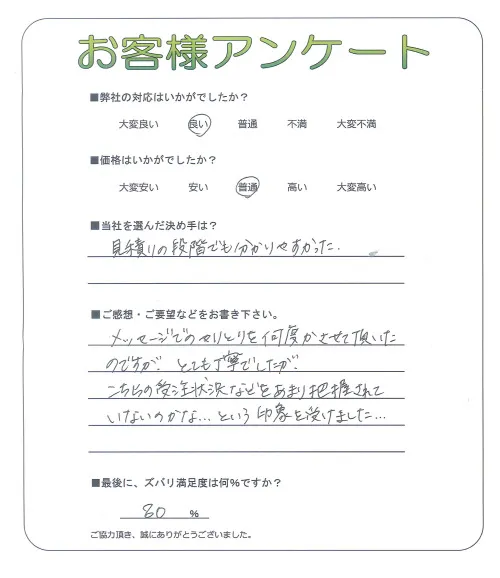 お客様アンケート
■弊社の対応はいかがでしたか？
大変良い 良い 普通 不満 大変不満
■価格はいかがでしたか？
大変安い 安い 普通 高い 大変高い
■当社を選んだ決め手は？
見積りの段階でも分かりやすかった.
■ご感想・ご要望などをお書き下さい。
メッセージでのやりとりを何度かさせて頂いた
のですが、とても丁寧でしたが、
こちらの受注状況などをあまり把握されて
いないのかな...という印象を受けました...
■最後に、ズバリ満足度は何％ですか？
80 ％
ご協力頂き、誠にありがとうございました。